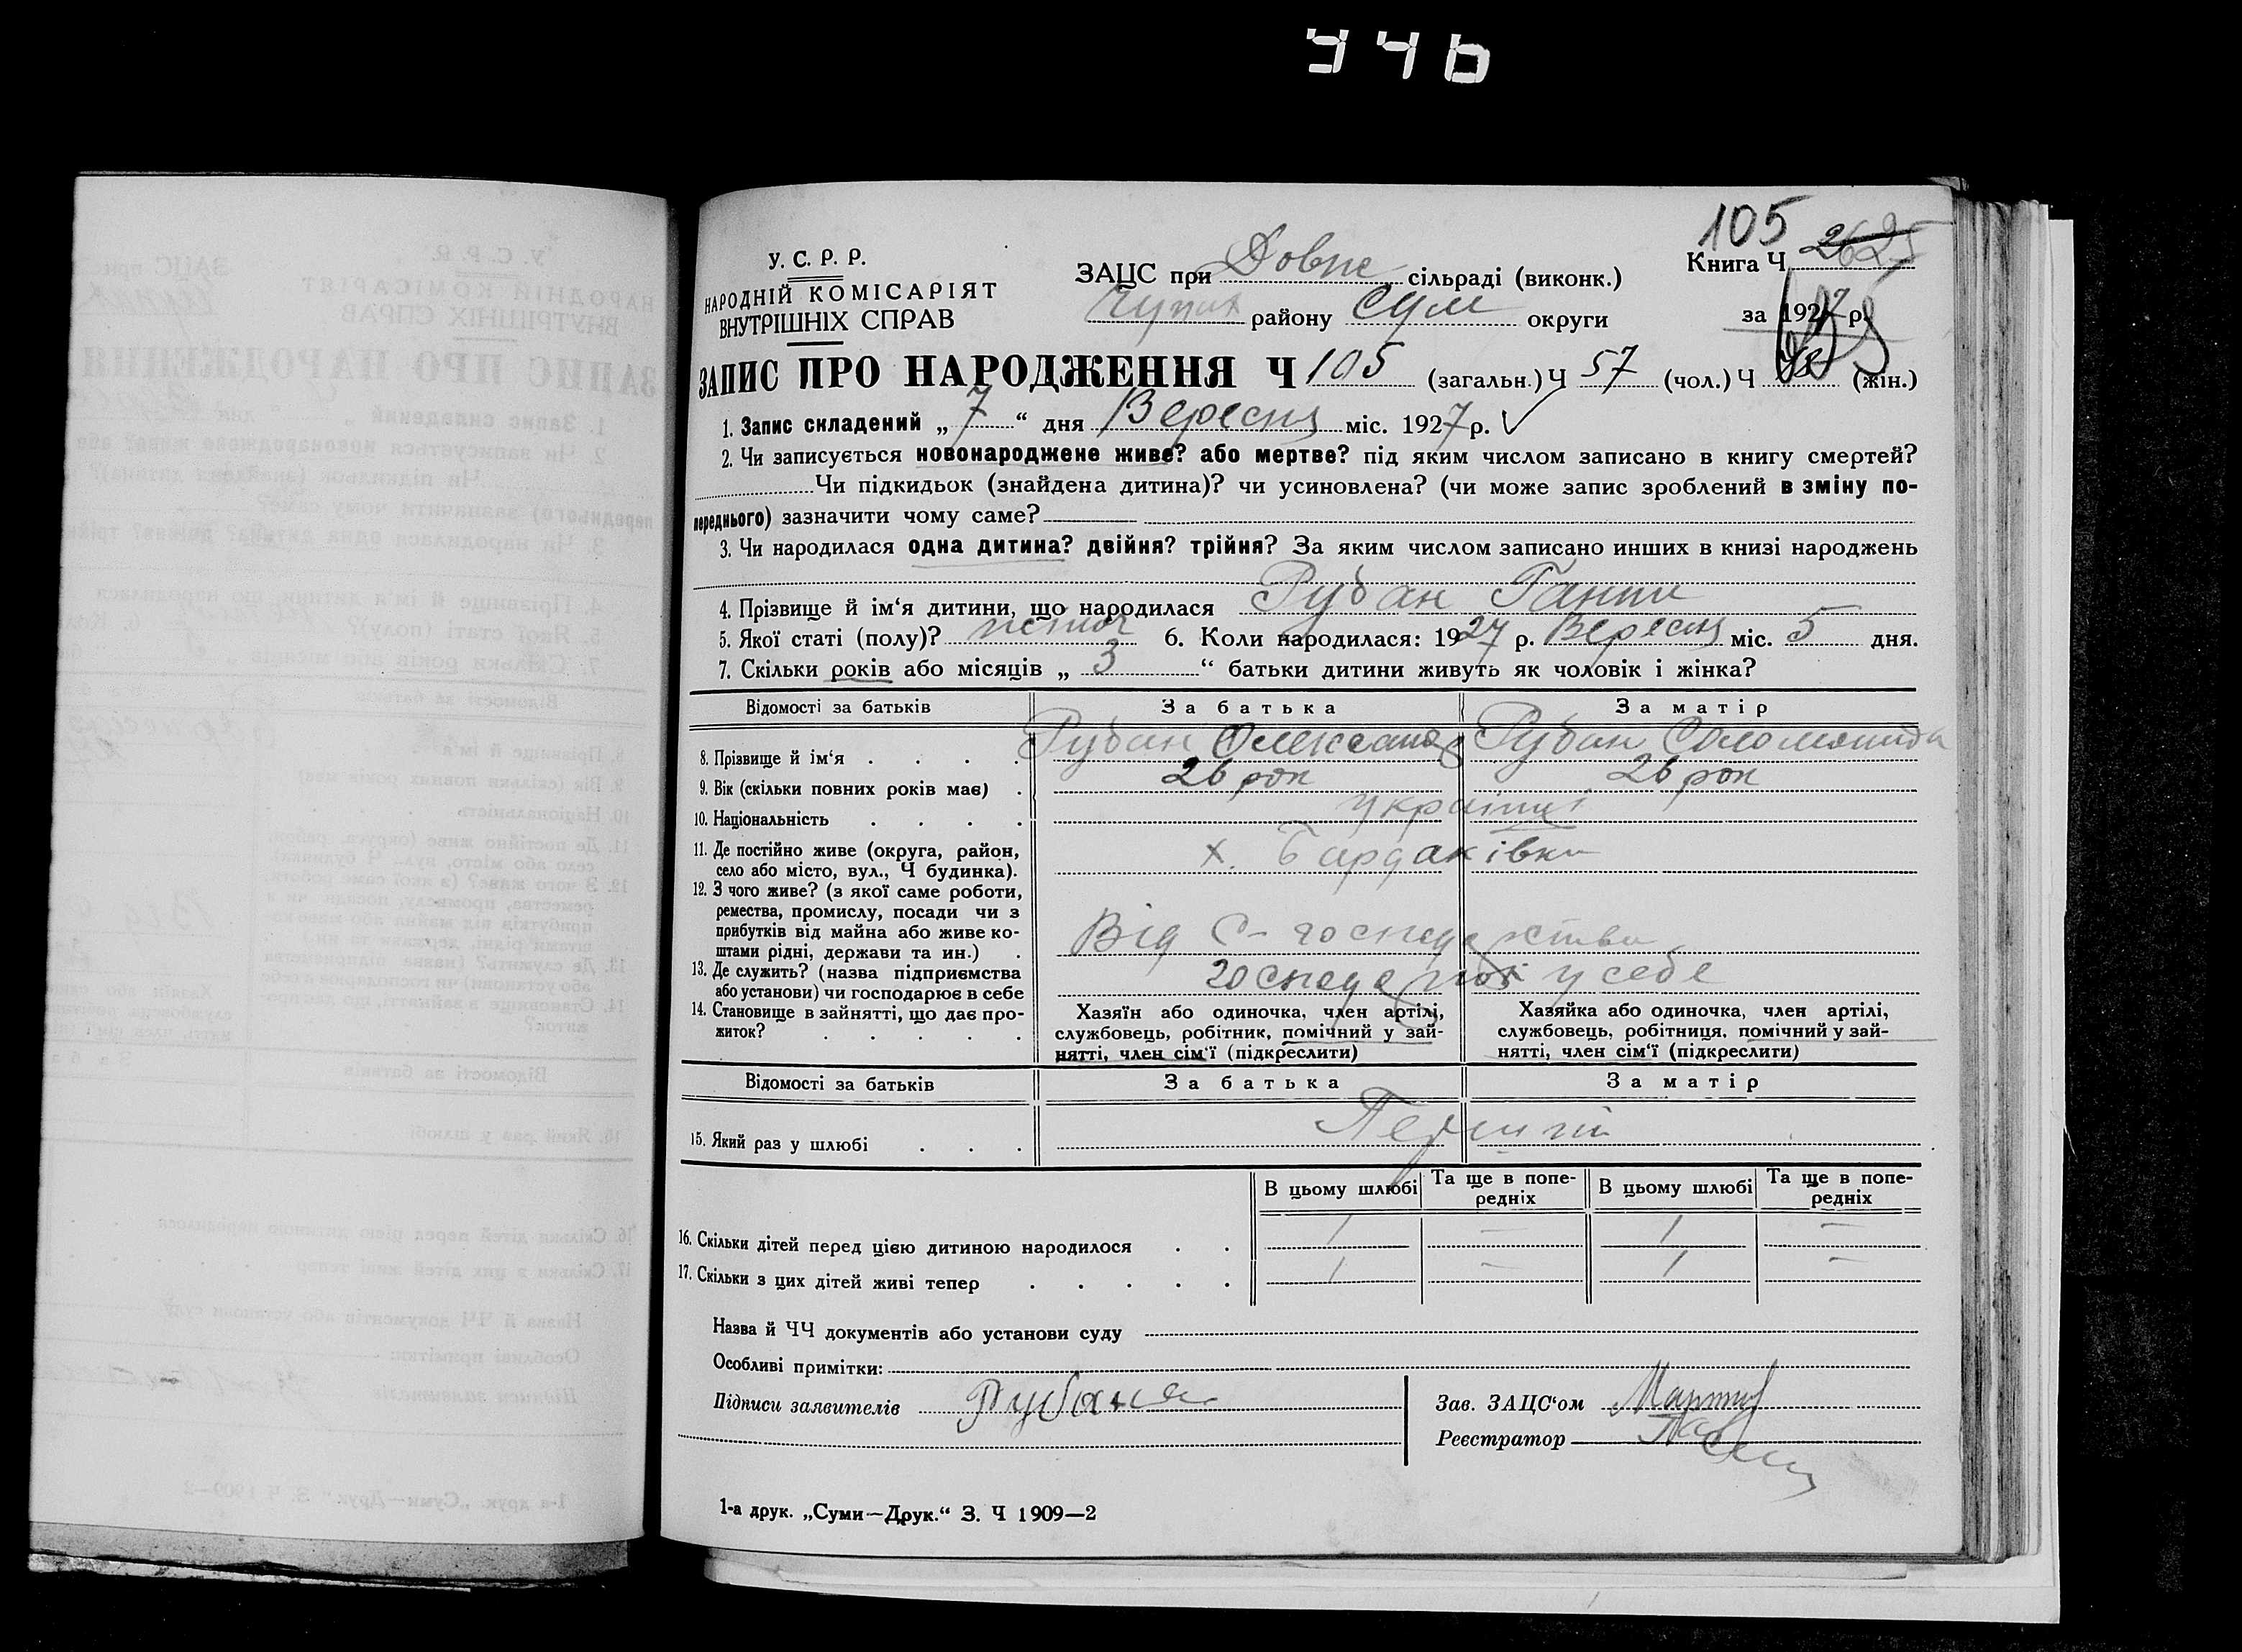 105
У. С. Р. Р.
НАРОДНІЙ КОМІСАРІЯТ
ВНУТРІШНІХ СПРАВ
ЗАЦС при Довж сільраді (виконк.)
Чупах району Сум округи
Книга Ч. 2625
за 1927 р.
ЗАПИС ПРО НАРОДЖЕННЯ Ч 105 (загальн.) Ч 57 (чол.) Ч 48 (жін.)
1. Запис складений „ 7 “ дня Вересня міс. 1927 р.
2. Чи записується новонароджене живе? або мертве? під яким числом записано в книгу смертей?
Чи підкидьок (знайдена дитина)? чи усиновлена? (чи може запис зроблений в зміну по-
переднього) зазначити чому саме?
3. Чи народилася одна дитина? двійня? трійня? За яким числом записано инших в книзі народжень
4. Прізвище й ім‘я дитини, що народилася Рубан Ганна
5. Якої статі (полу)? жіноч 6. Коли народилася: 1927 р. Вересня міс. 5 дня.
7. Скільки років або місяців „ 3 “ батьки дитини живуть як чоловік і жінка?
Відомості за батьків За батька За матір
8. Прізвище й ім‘я Рубан Олександ Рубан Соломонида
9. Вік (скільки повних років має) 26 рок 26 рок
10. Національність українці
11. Де постійно живе (округа, район,
село або місто, вул., Ч будинка). х. Бардаківка
12. З чого живе? (з якої саме роботи,
ремества, промислу, посади чи з
прибутків від майна або живе ко-
штами рідні, держави та ин.) Від С- господарства
13. Де служить? (назва підприємства
або установи) чи господарює в себе у себе
14. Становище в зайнятті, що дає про-
житок?
Хазяїн або одиночка, член артілі,
службовець, робітник, помічний у зай-
нятті, член сім‘ї (підкреслити)
Хазяйка або одиночка, член артілі,
службовець, робітниця, помічний у зай-
нятті, член сім‘ї (підкреслити)
Відомості за батьків За батька За матір
15. Який раз у шлюбі Перший
В цьому шлюбі Та ще в попе-
редніх В цьому шлюбі Та ще в попе-
редніх
16. Скільки дітей перед цією дитиною народилося 1 — 1 —
17. Скільки з цих дітей живі тепер 1 — 1 —
Назва й ЧЧ документів або установи суду
Особливі примітки:
Підписи заявителів Рубан
Зав. ЗАЦС‘ом
Реєстратор
1-а друк. „Суми—Друк.“ З. Ч 1909—2